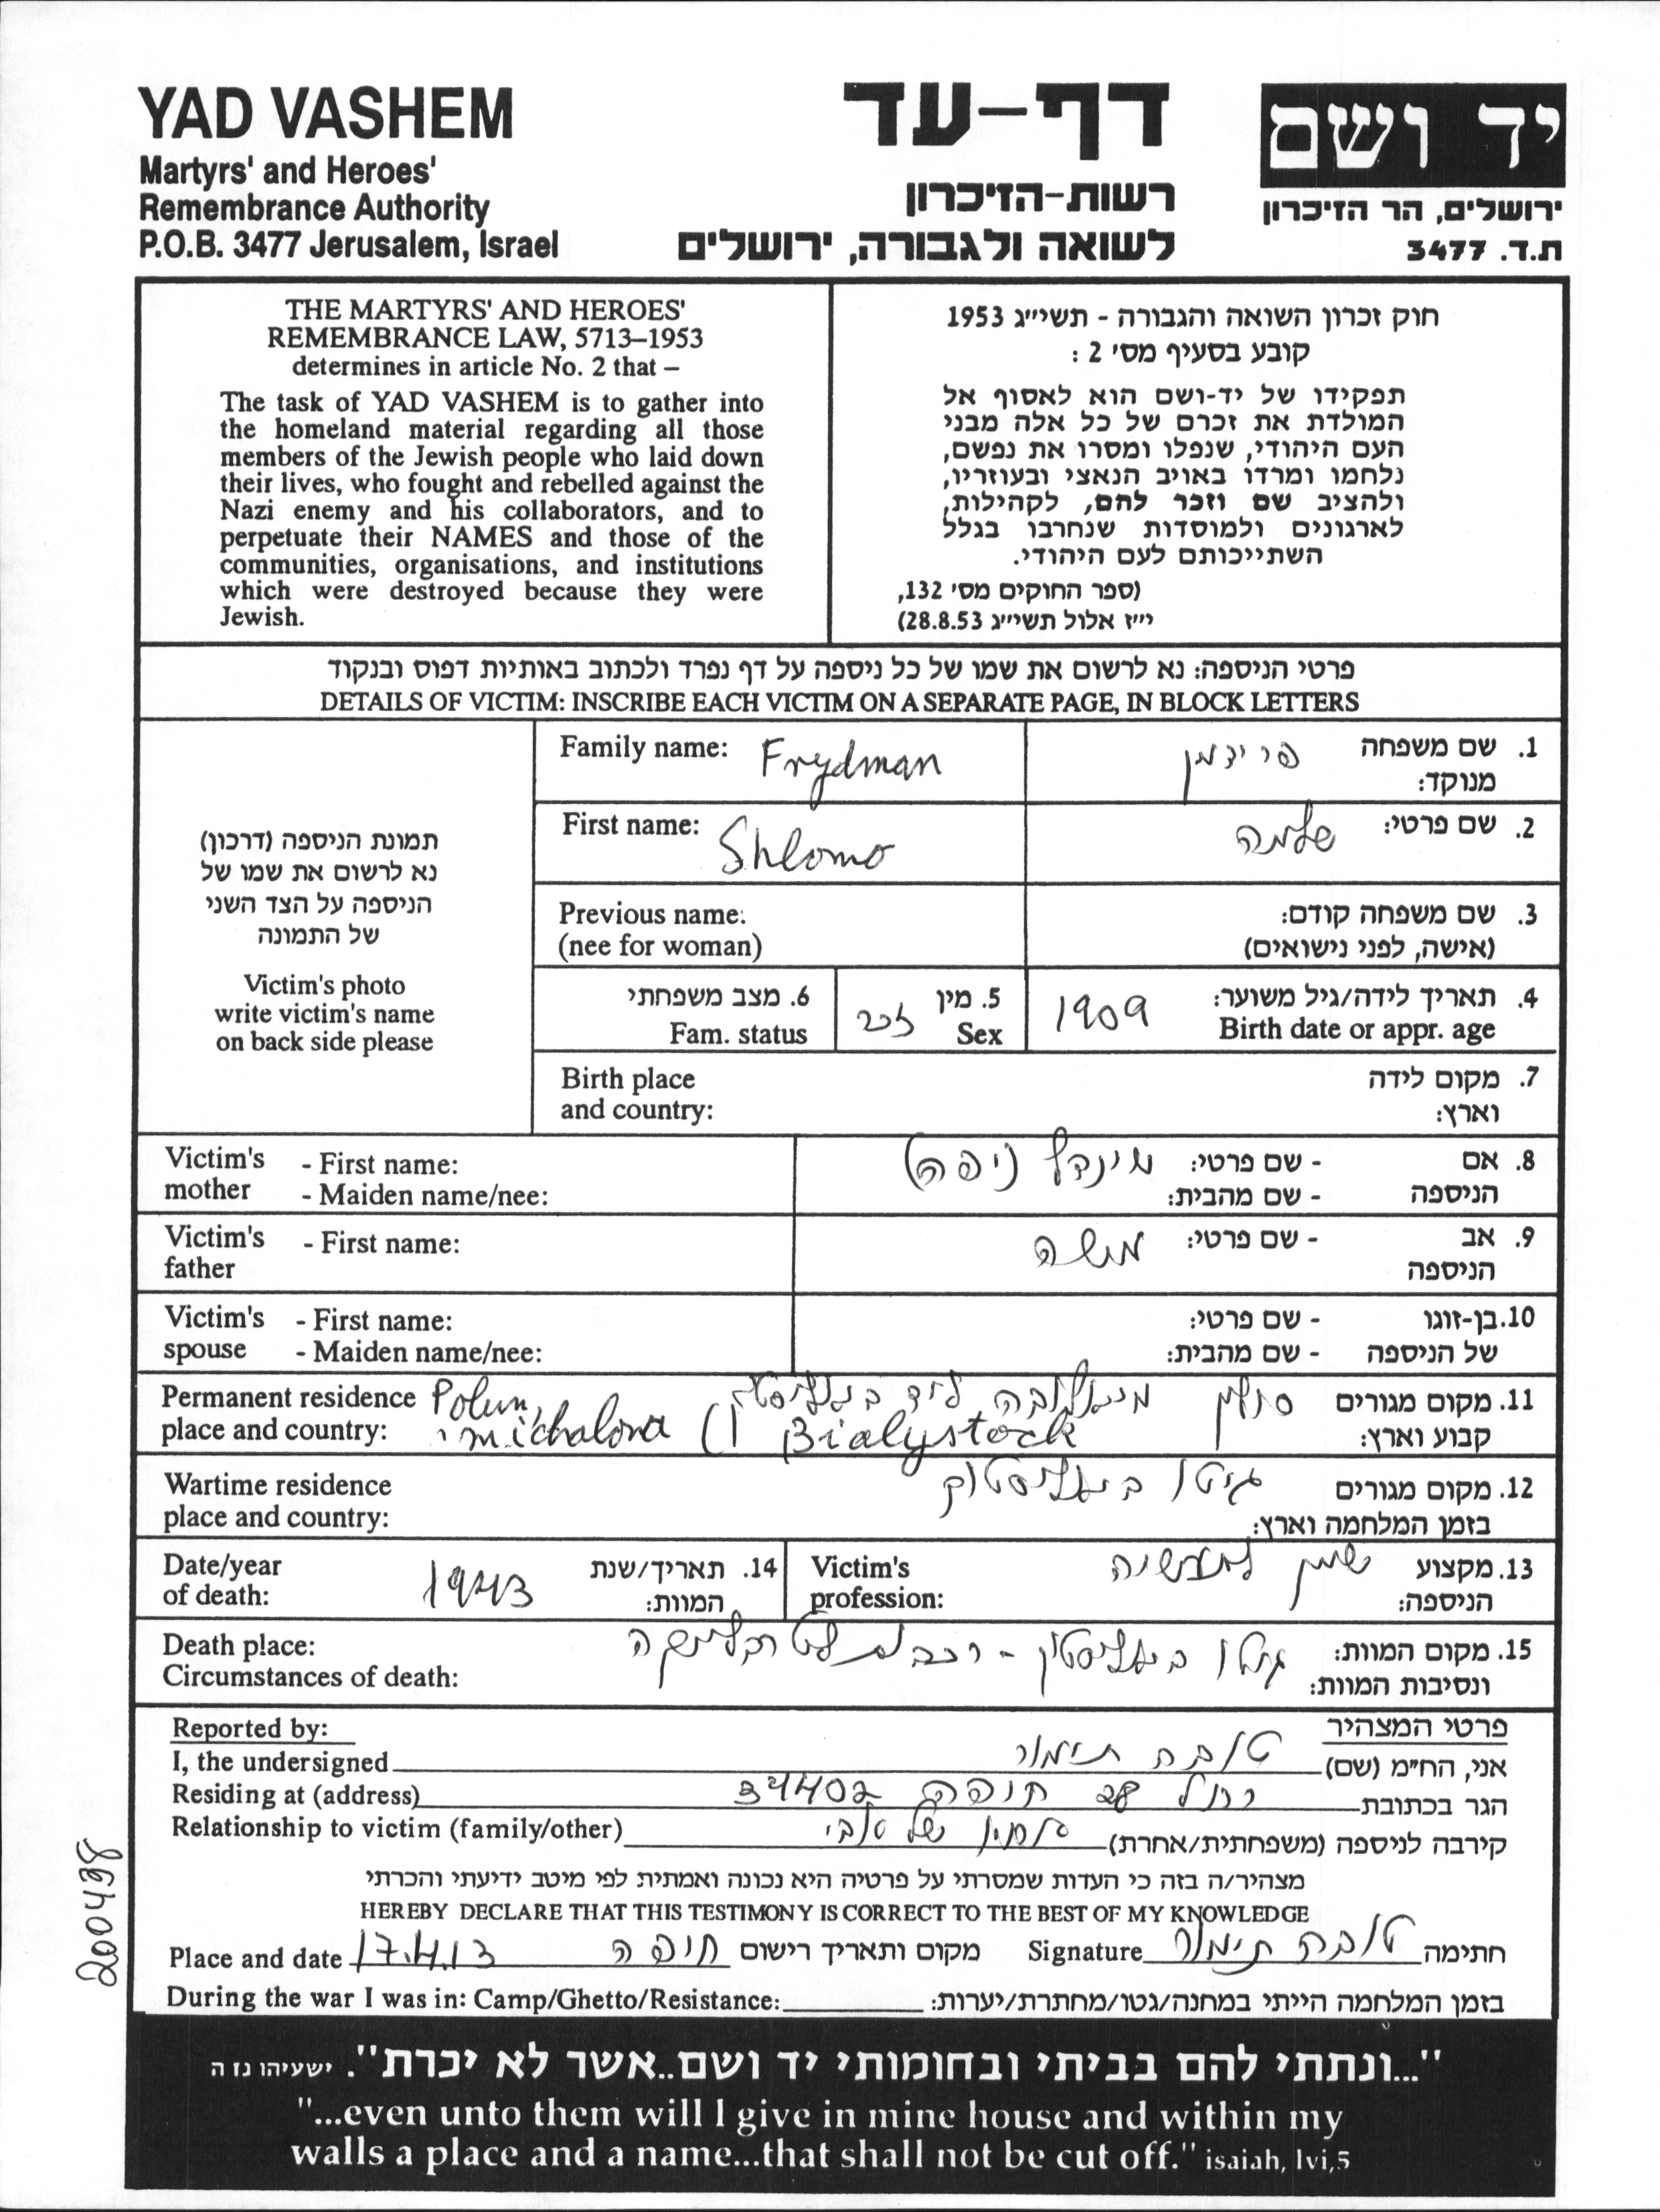 YAD VASHEM
Martyrs' and Heroes'
Remembrance Authority
P.O.B. 3477 Jerusalem, Israel
דף-עד
רשות-הזיכרון
לשואה ולגבורה, ירושלים
יד ושם
ירושלים, הר הזיכרון
ת.ד. 3477
THE MARTYRS' AND HEROES'
REMEMBRANCE LAW, 5713–1953
determines in article No. 2 that –
The task of YAD VASHEM is to gather into
the homeland material regarding all those
members of the Jewish people who laid down
their lives, who fought and rebelled against the
Nazi enemy and his collaborators, and to
perpetuate their NAMES and those of the
communities, organisations, and institutions
which were destroyed because they were
Jewish.
חוק זכרון השואה והגבורה - תשי״ג 1953
קובע בסעיף מס׳ 2 :
תפקידו של יד-ושם הוא לאסוף אל
המולדת את זכרם של כל אלה מבני
העם היהודי, שנפלו ומסרו את נפשם,
נלחמו ומרדו באויב הנאצי ובעוזריו,
ולהציב שם וזכר להם, לקהילות,
לארגונים ולמוסדות שנחרבו בגלל
השתייכותם לעם היהודי.
(ספר החוקים מס׳ 132,
י״ז אלול תשי״ג 28.8.53)
פרטי הניספה: נא לרשום את שמו של כל ניספה על דף נפרד ולכתוב באותיות דפוס ובנקוד
DETAILS OF VICTIM: INSCRIBE EACH VICTIM ON A SEPARATE PAGE, IN BLOCK LETTERS
תמונת הניספה (דרכון)
נא לרשום את שמו של
הניספה על הצד השני
של התמונה
Victim's photo
write victim's name
on back side please
Family name: Frydman
1. שם משפחה מנוקד: פרידמן
First name: Shlomo
2. שם פרטי: שלמה
Previous name:
(nee for woman)
3. שם משפחה קודם:
(אישה, לפני נישואים)
6. מצב משפחתי
Fam. status
5. מין זכר
Sex
4. תאריך לידה/גיל משוער:
Birth date or appr. age 1909
Birth place
and country:
7. מקום לידה
וארץ:
Victim's mother - First name:
- Maiden name/nee:
8. אם הניספה - שם פרטי: מינדל (יפה)
- שם מהבית:
Victim's father - First name:
9. אב הניספה - שם פרטי: משה
Victim's spouse - First name:
- Maiden name/nee:
10. בן-זוגו של הניספה - שם פרטי:
- שם מהבית:
Permanent residence
place and country: michalova Bialystock
11. מקום מגורים
קבוע וארץ: פולין ליד
Wartime residence
place and country:
12. מקום מגורים
בזמן המלחמה וארץ: גיטו ביאליסטוק
Date/year
of death: 1943
14. תאריך/שנת
המוות:
Victim's
profession:
13. מקצוע
הניספה: לתעשיה
Death place:
Circumstances of death:
15. מקום המוות:
ונסיבות המוות: גיטו ביאליסטוק - רכבת לטרבלינקה
Reported by:
פרטי המצהיר
I, the undersigned טובה תימור אני, החי״מ (שם)
Residing at (address) 28 חיפה 34402 הגר בכתובת
Relationship to victim (family/other) של סבי קירבה לניספה (משפחתית/אחרת)
מצהיר/ה בזה כי העדות שמסרתי על פרטיה היא נכונה ואמתית לפי מיטב ידיעתי והכרתי
HEREBY DECLARE THAT THIS TESTIMONY IS CORRECT TO THE BEST OF MY KNOWLEDGE
Place and date 17.4.13 חיפה מקום ותאריך רישום Signature טובה תימור חתימה
During the war I was in: Camp/Ghetto/Resistance: בזמן המלחמה הייתי במחנה/גטו/מחתרת/יערות:
"...ונתתי להם בביתי ובחומותי יד ושם..אשר לא יכרת". ישעיהו נז ה
"...even unto them will I give in mine house and within my
walls a place and a name...that shall not be cut off." isaiah, lvi,5
200498